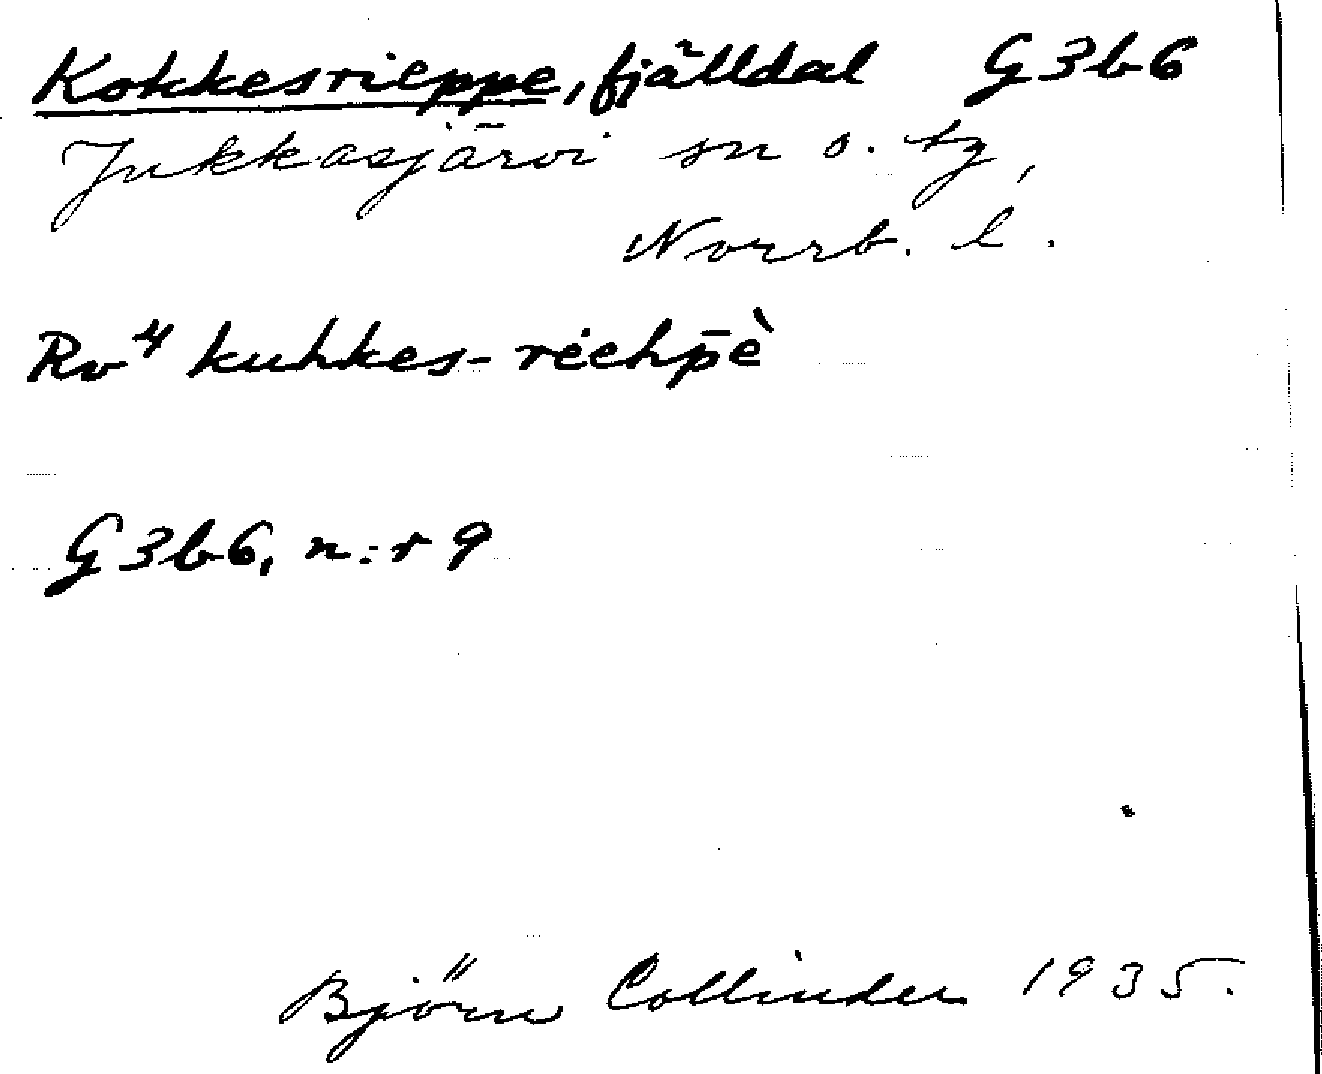 Kokkesrieppe, fjälldal G3b6
Jukkasjärvi sn o. tg,
Norrb. l.
Rv⁴ kuhkes-riehp̄è
G3b6, n:r 9
Björn Collinder 1935.